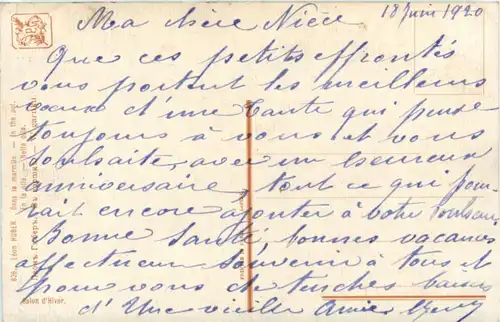 18 Juin 1920
Ma chère Nièce
Que ces petits effrontés
vous portent les meilleurs
voeux d'une Tante qui pense
toujours à vous et vous
souhaite, avec un heureux
anniversaire, tout ce qui pour
rait encore ajouter à votre bonheur
Bonne Santé, bonnes vacances
affectueux souvenir à tous et
pour vous de tendres baisers
d'Une vieille Amie
Salon d'Hiver.
829. Léon HUBER. Dans la marmite. — In the pot.